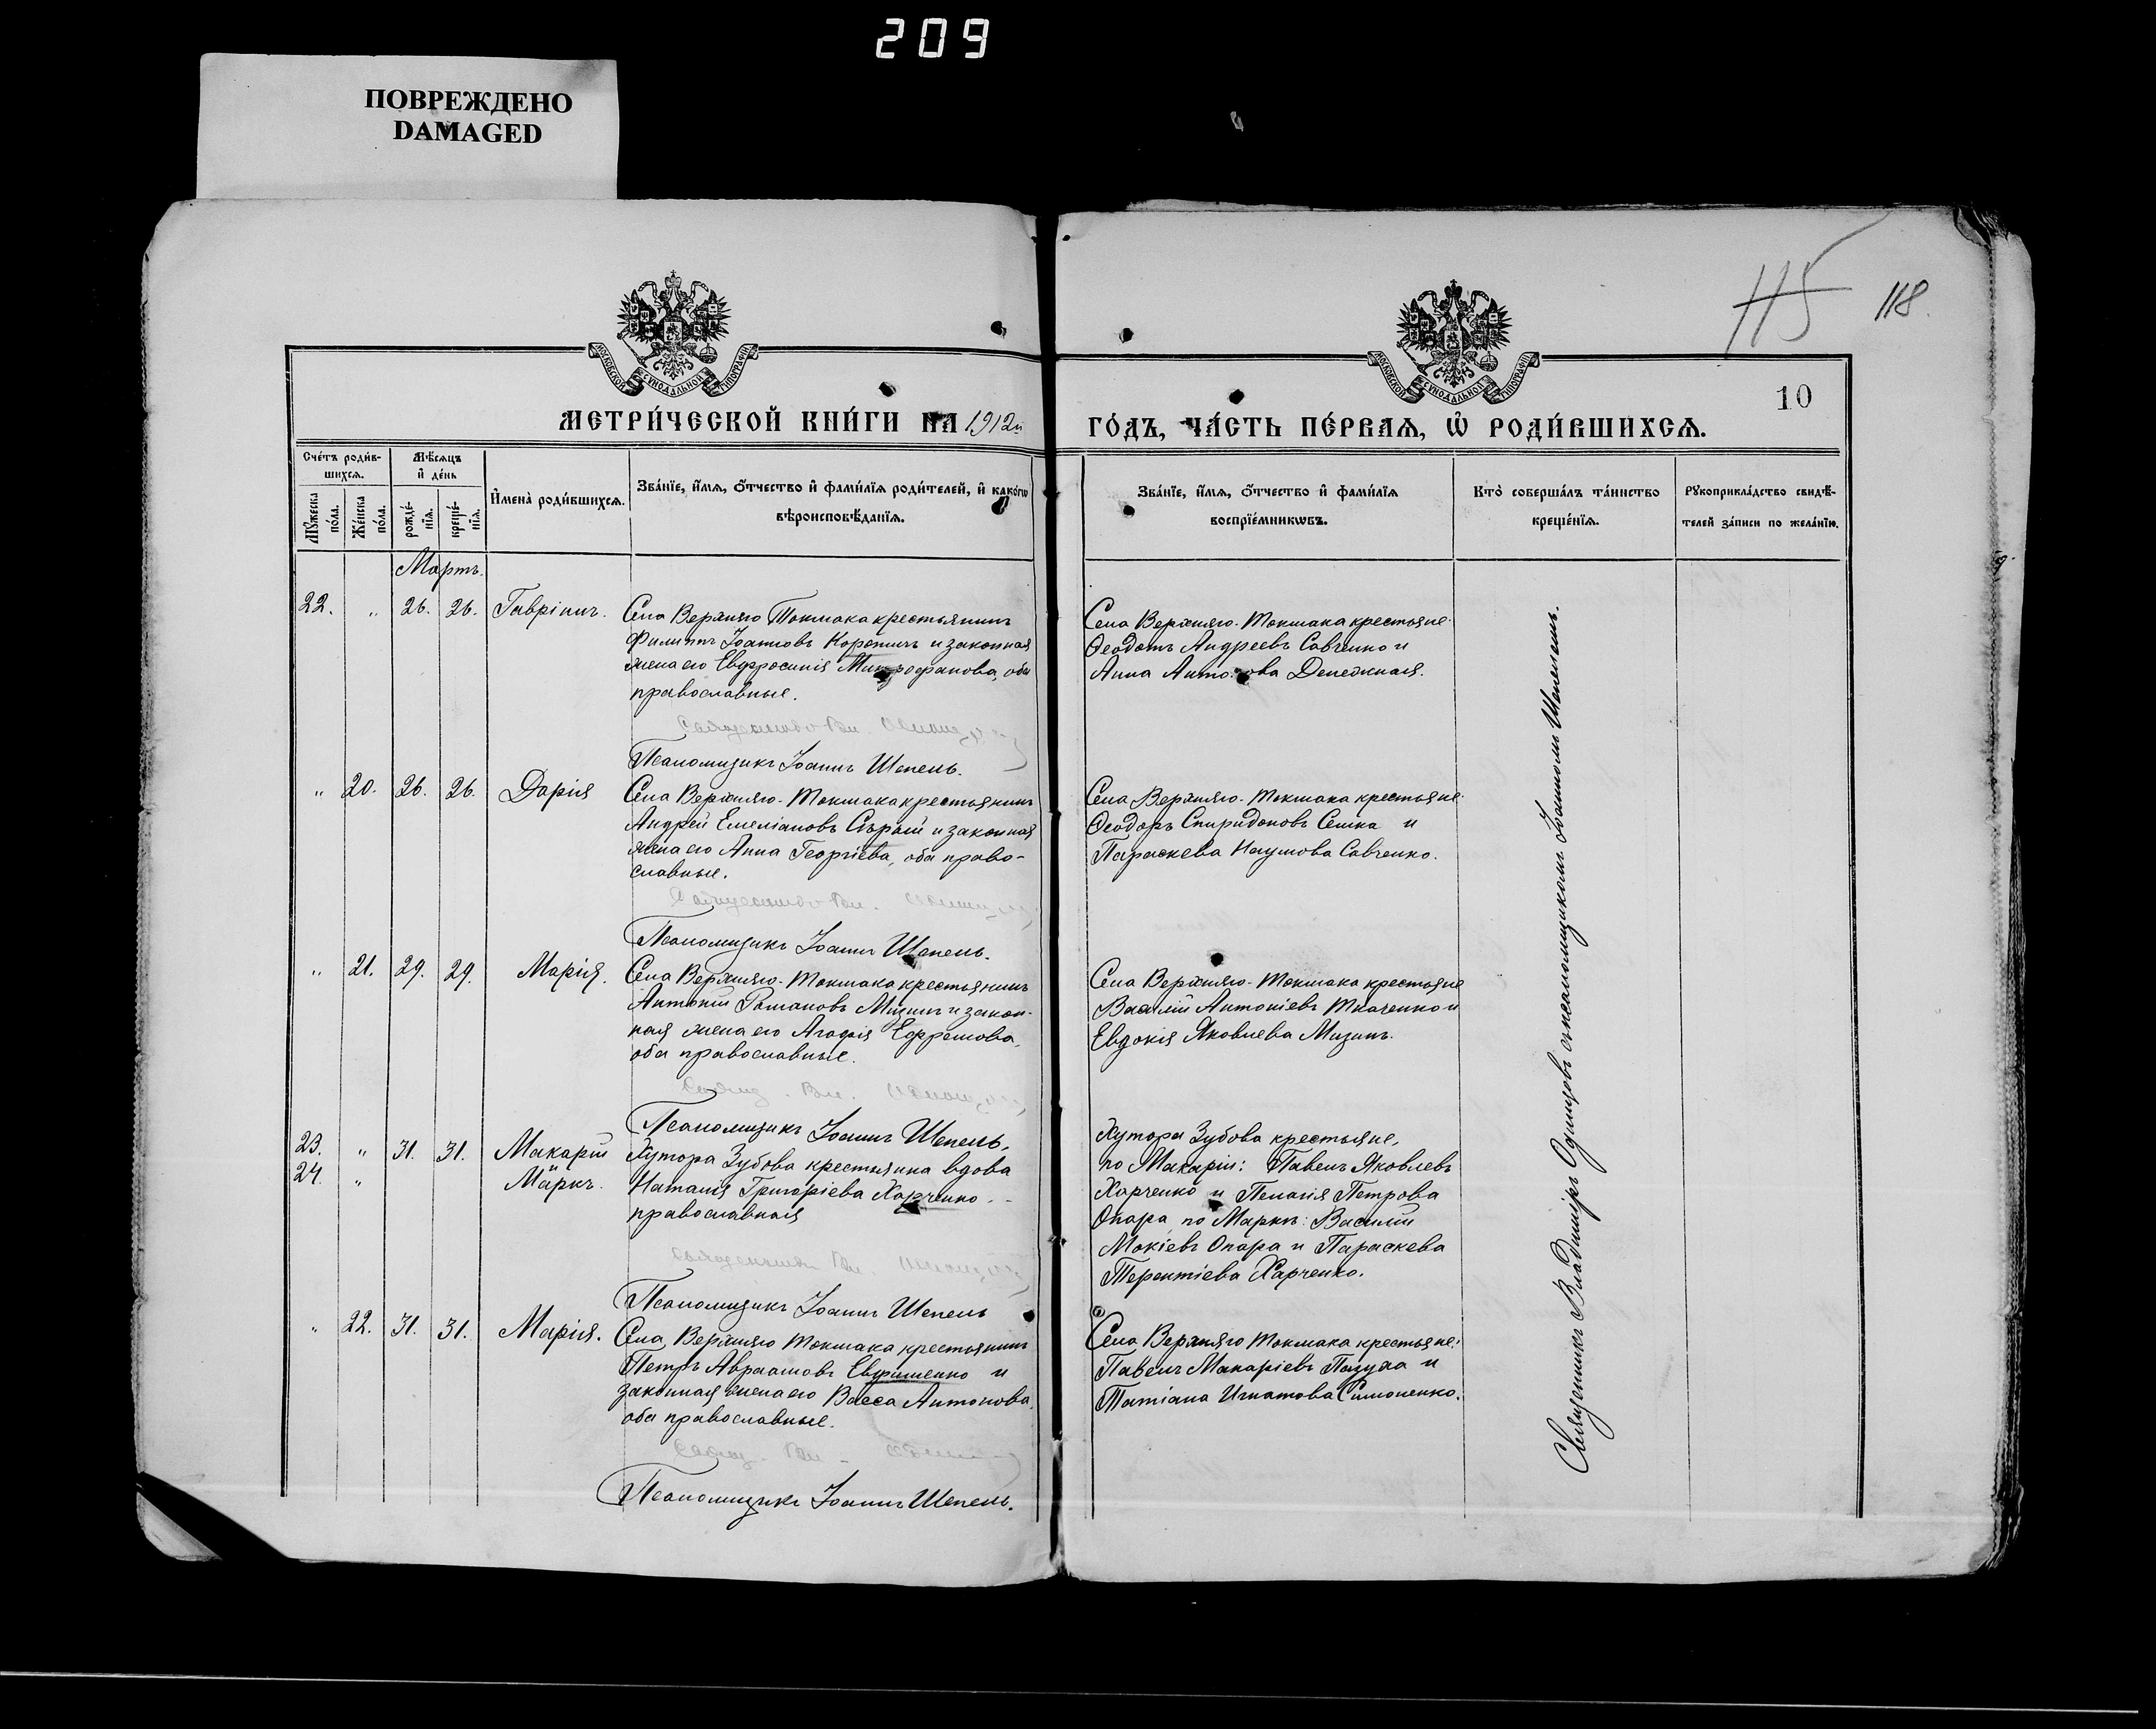 209
ПОВРЕЖДЕНО
DAMAGED
115 118.
10
МОСКОВСКОЙ СѴНОДАЛЬНОЙ ТИПОГРАФІИ
МОСКОВСКОЙ СѴНОДАЛЬНОЙ ТИПОГРАФІИ
МЕТРИ́ЧЕСКОЙ КНИ́ГИ НА 1912й
ГО́ДЪ, ЧА́СТЬ ПЕ́РВАЯ, Ѡ РОДИ́ВШИХСЯ.
Сче́тъ роди́в-
шихся.
Мꙋжеска по́ла.
Же́нска по́ла.
Мѣ́сяцъ
и҆ де́нь
рожде́-
нїя.
креще́-
нїя.
И҆мена̀ роди́вшихся.
Зва́нїе, и҆́мя, ѻ҆́тчество и҆ фами́лїя роди́телей, и҆ како́гѡ
вѣроисповѣ́данїя.
Зва́нїе, и҆́мя, ѻ҆́тчество и҆ фами́лїя
воспрїе́мникѡвъ.
Кто̀ соверша́лъ та́инство
креще́нїя.
Рꙋкоприкла́дство свидѣ́-
телей за́писи по жела́нїю.
Мартъ.
22. „ 26. 26. Гавріилъ.
Села Верхняго Токмака крестьянинъ
Филиппъ Іоанновъ и законная
жена его Евфросинія Митрофанова, оба
православные.
Псаломщикъ Іоаннъ Шепель.
Села Верхняго-Токмака крестьяне
Ѳеодотъ Андреевъ Савченко и
Анна Антонова Денежная.
„ 20. 26. 26. Дарія
Села Верхняго-Токмака крестьянинъ
Андрей Емеліановъ Сѣрый и законная
жена его Анна Георгіева, оба право-
славные.
Псаломщикъ Іоаннъ Шепель.
Села Верхняго-Токмака крестьяне
Ѳеодоръ Спиридоновъ Сешка и
Параскева Наумова Савченко.
„ 21. 29. 29. Марія.
Села Верхняго-Токмака крестьянинъ
Антоній Романовъ Мизинъ и закон-
ная жена его Агафія Ефремова,
оба православные.
Псаломщикъ Іоаннъ Шепель.
Села Верхняго-Токмака крестьяне
Василій Антоніевъ Ткаченко и
Евдокія Яковлева Мизинъ.
23. „ 31. 31. Макарій
24. „ Маркъ.
Хутора Зубова крестьянка вдова
Наталія Григоріева Харченко
православная
Псаломщикъ Іоаннъ Шепель
Хутора Зубова крестьяне,
по Макаріи: Павелъ Яковлевъ
Харченко и Пелагія Петрова
Опара, по Маркѣ: Василій
Мокіевъ Опара и Параскева
Терентіева Харченко.
„ 22. 31. 31. Марія.
Села Верхняго Токмака крестьянинъ
Петръ Авраамовъ Евфименко и
законная жена его Васса Антонова,
оба православные.
Псаломщикъ Іоаннъ Шепель.
Села Верхняго Токмака крестьяне:
Павелъ Макаріевъ Пазуха и
Татіана Игнатова Симоненко.
Священникъ Владиміръ Одинцовъ съ псаломщикомъ Іоанномъ Шепелемъ.